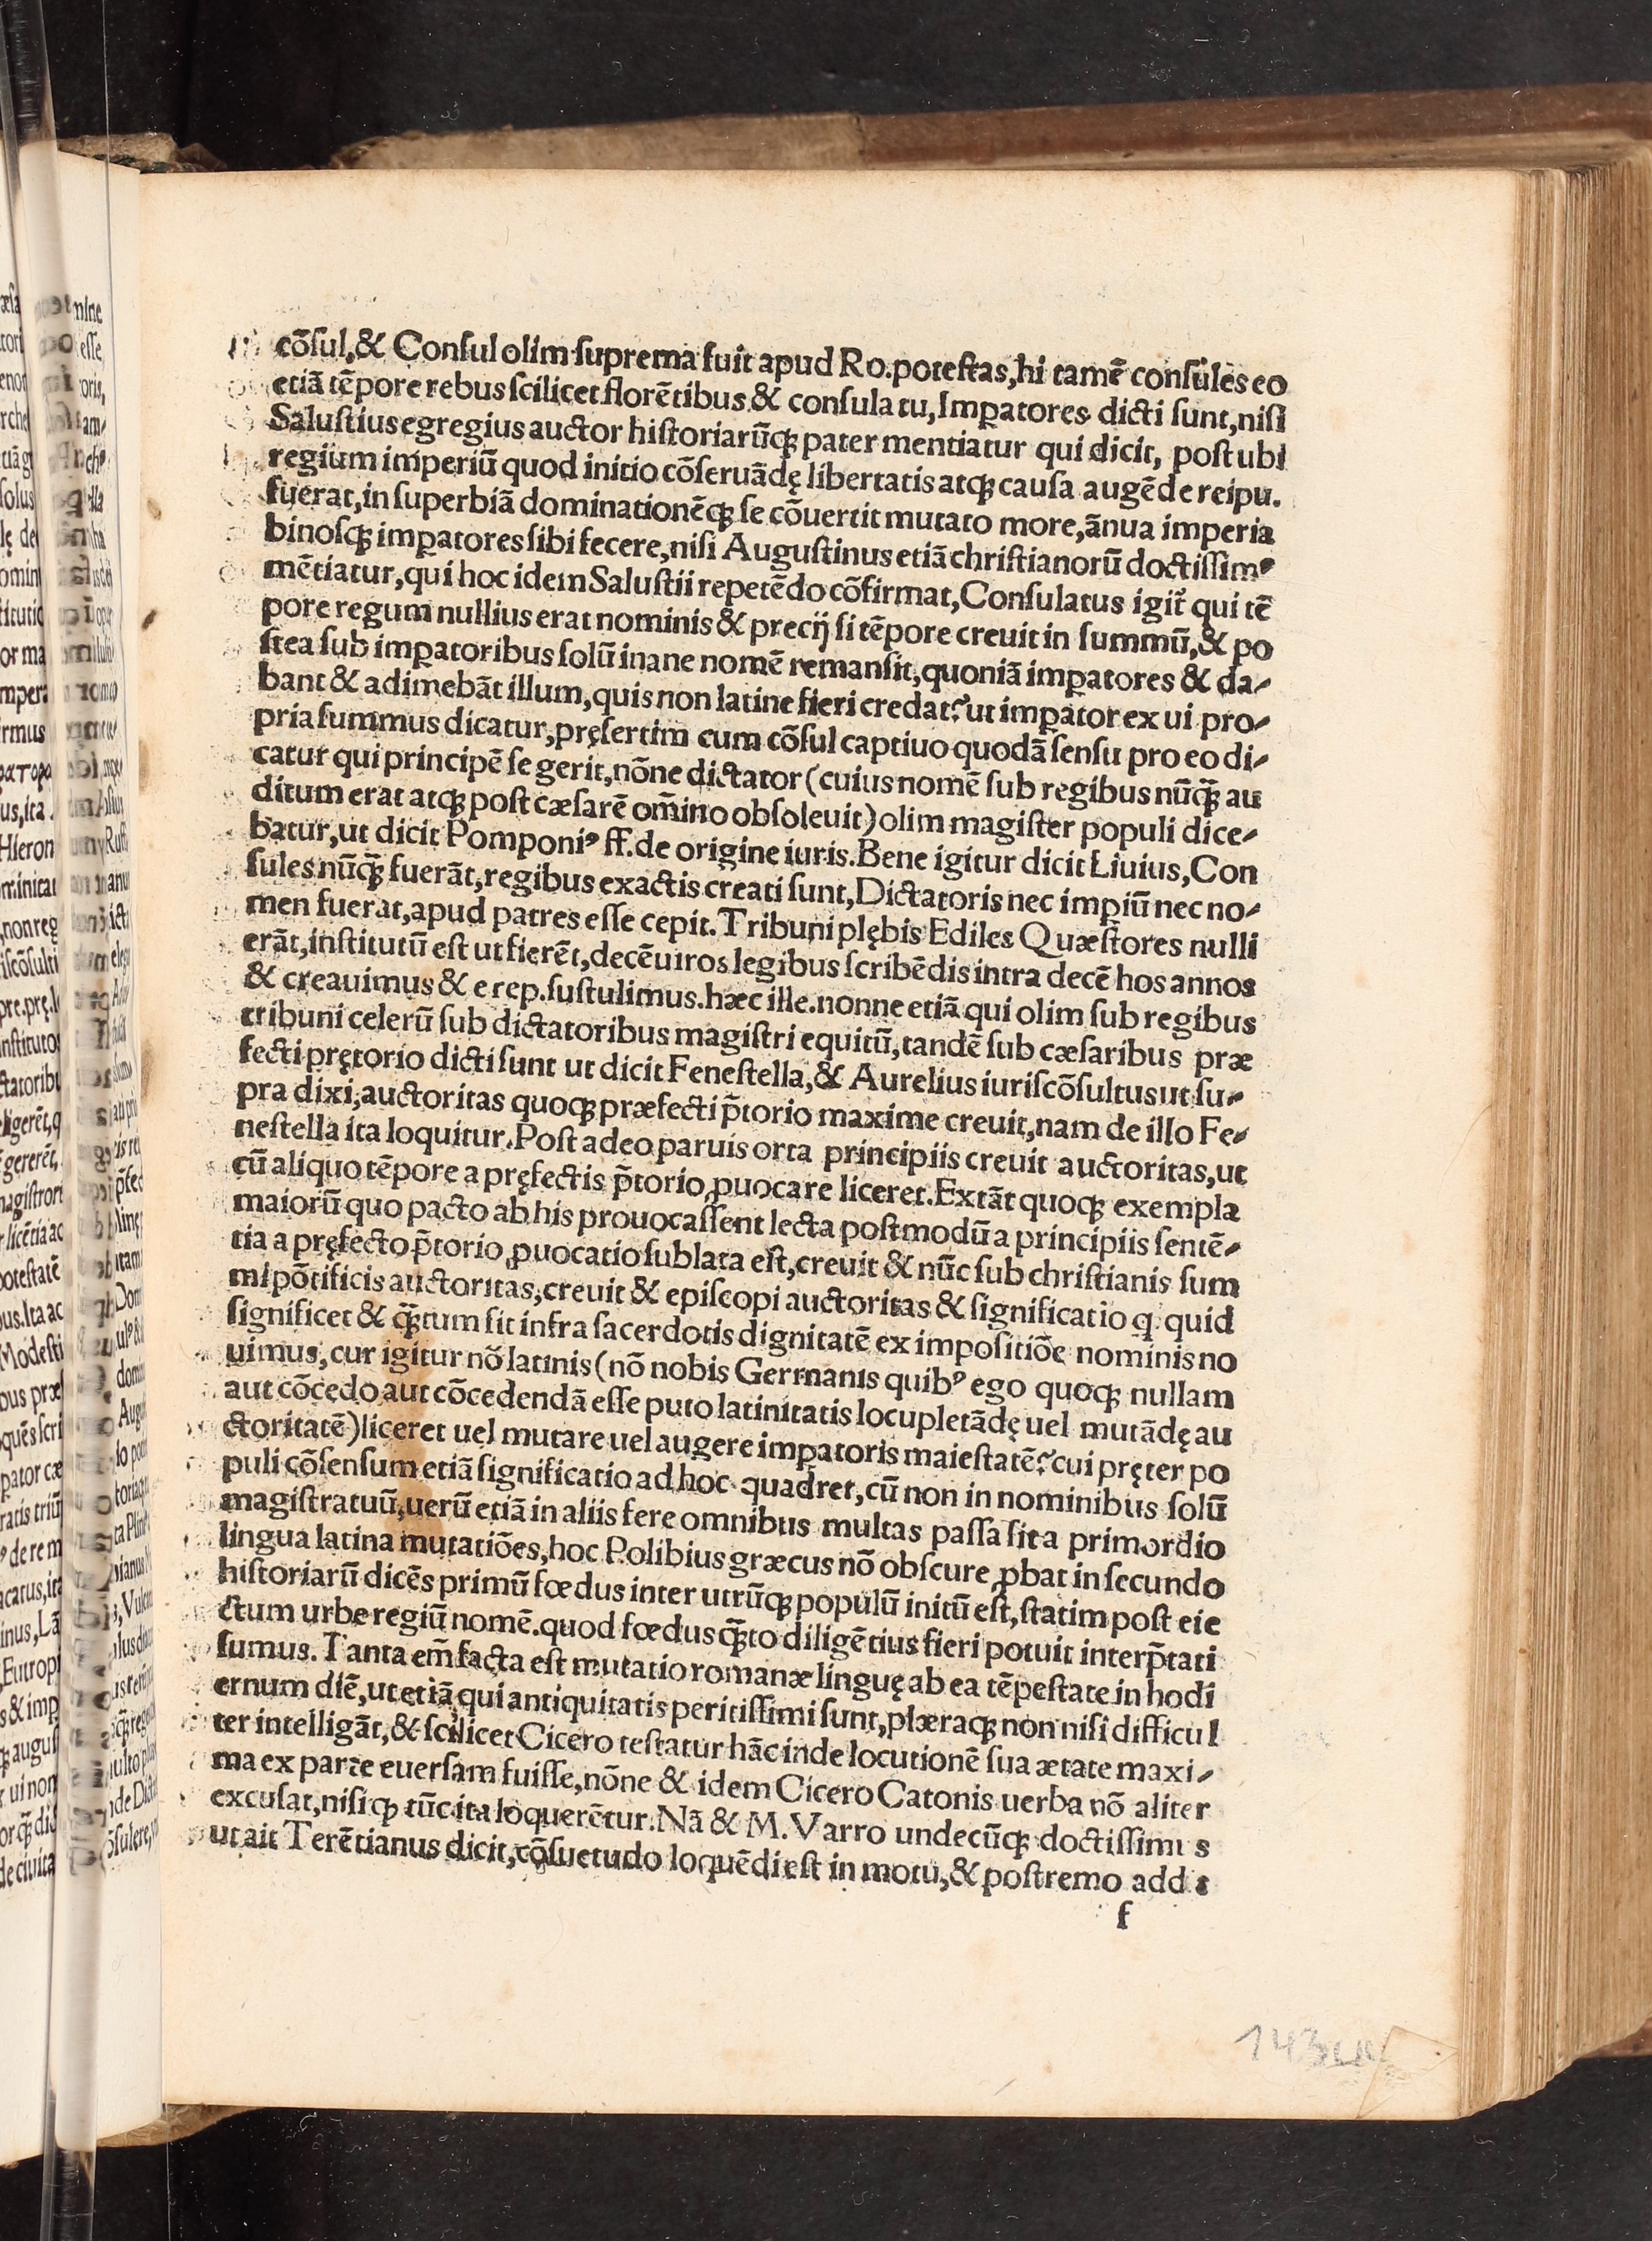 cõſul,& Conſul olim ſuprema fuit apud Ro.poteſtas,hi tamẽ conſules eo
etiã tẽpore rebus ſcilicet florẽtibus & conſulatu,Imꝑatores dicti ſunt,niſi
Saluſtius egregius auctor hiſtoriarũqꝫ pater mentiatur qui dicit, poſt ubi
regium imperiũ quod initio cõſeruãdę libertatis atqꝫ cauſa augẽde reipu.
fuerat,in ſuperbiã dominationẽqꝫ ſe cõuertit mutato more,ãnua imperia
binoſqꝫ imꝑatores ſibi fecere,niſi Auguſtinus etiã chriſtianorũ doctiſſimꝰ
mẽtiatur,qui hoc idem Saluſtii repetẽdo cõfirmat,Conſulatus igit̃ qui tẽ
pore regum nullius erat nominis & precij ſi tẽpore creuit in ſummũ,& po
ſtea ſub imꝑatoribus ſolũ inane nomẽ remanſit,quoniã imꝑatores & da⸗
bant & adimebãt illum,quis non latine fieri credat?ut imꝑator ex ui pro⸗
pria ſummus dicatur,pręſertim cum cõſul captiuo quodã ſenſu pro eo di⸗
catur qui principẽ ſe gerit,nõne dictator (cuius nomẽ ſub regibus nũqꝫ̃ au
ditum erat atqꝫ poſt cæſarẽ om̃ino obſoleuit)olim magiſter populi dice⸗
batur,ut dicit Pomponiꝰ ff.de origine iuris.Bene igitur dicit Liuius,Con
ſules nũqꝫ̃ fuerãt,regibus exactis creati ſunt,Dictatoris nec imꝑiũ nec no⸗
men fuerat,apud patres eſſe cepit.Tribuni plębis Ediles Quæſtores nulli
erãt,inſtitutũ eſt ut fierẽt,decẽuiros legibus ſcribẽdis intra decẽ hos annos
& creauimus & e rep.ſuſtulimus.hæc ille.nonne etiã qui olim ſub regibus
tribuni celerũ ſub dictatoribus magiſtri equitũ,tandẽ ſub cæſaribus præ
fecti prętorio dicti ſunt ut dicit Feneſtella,& Aurelius iuriſcõſultus ut ſu⸗
pra dixi,auctoritas quoqꝫ præfecti p̃torio maxime creuit,nam de illo Fe⸗
neſtella ita loquitur.Poſt adeo paruis orta principiis creuit auctoritas,ut
cũ aliquo tẽpore a pręfectis p̃torio ꝓuocare liceret.Extãt quoqꝫ exempla
maiorũ quo pacto ab his prouocaſſent lecta poſtmodũ a principiis ſentẽ⸗
tia a pręfecto p̃torio ꝓuocatio ſublata eſt,creuit & nũc ſub chriſtianis ſum
mi põtificis auctoritas,creuit & epiſcopi auctoritas & ſignificatio q quid
ſignificet & qꝫ̃tum ſit infra ſacerdotis dignitatẽ ex impoſitiõe nominis no
uimus,cur igitur nõ latinis (nõ nobis Germanis quibꝰ ego quoqꝫ nullam
aut cõcedo aut cõcedendã eſſe puto latinitatis locupletãdę uel mutãdę au
ctoritatẽ)liceret uel mutare uel augere imꝑatoris maieſtatẽ?cui pręter po
puli cõſenſum etiã ſignificatio ad hoc quadret,cũ non in nominibus ſolũ
magiſtratuũ,uerũ etiã in aliis fere omnibus multas paſſa ſit a primordio
lingua latina mutatiões,hoc Polibius græcus nõ obſcure ꝓbat in ſecundo
hiſtoriarũ dicẽs primũ fœdus inter utrũqꝫ populũ initũ eſt,ſtatim poſt eie
ctum urbe regiũ nomẽ.quod fœdus qꝫ̃to diligẽtius fieri potuit interp̃tati
ſumus.Tanta em̃ facta eſt mutatio romanæ linguę ab ea tẽpeſtate in hodi
ernum diẽ,ut etiã qui antiquitatis peritiſſimi ſunt,plæraqꝫ non niſi difficul
ter intelligãt,& ſcilicet Cicero teſtatur hãc inde locutionẽ ſua ætate maxi⸗
ma ex parte euerſam fuiſſe,nõne & idem Cicero Catonis uerba nõ aliter
excuſat,niſi ꝙ tũc ita loquerẽtur.Nã & M.Varro undecũqꝫ doctiſſimus
ut ait Terẽtianus dicit,cõſuetudo loquẽdi eſt in motu,& poſtremo add
f
143